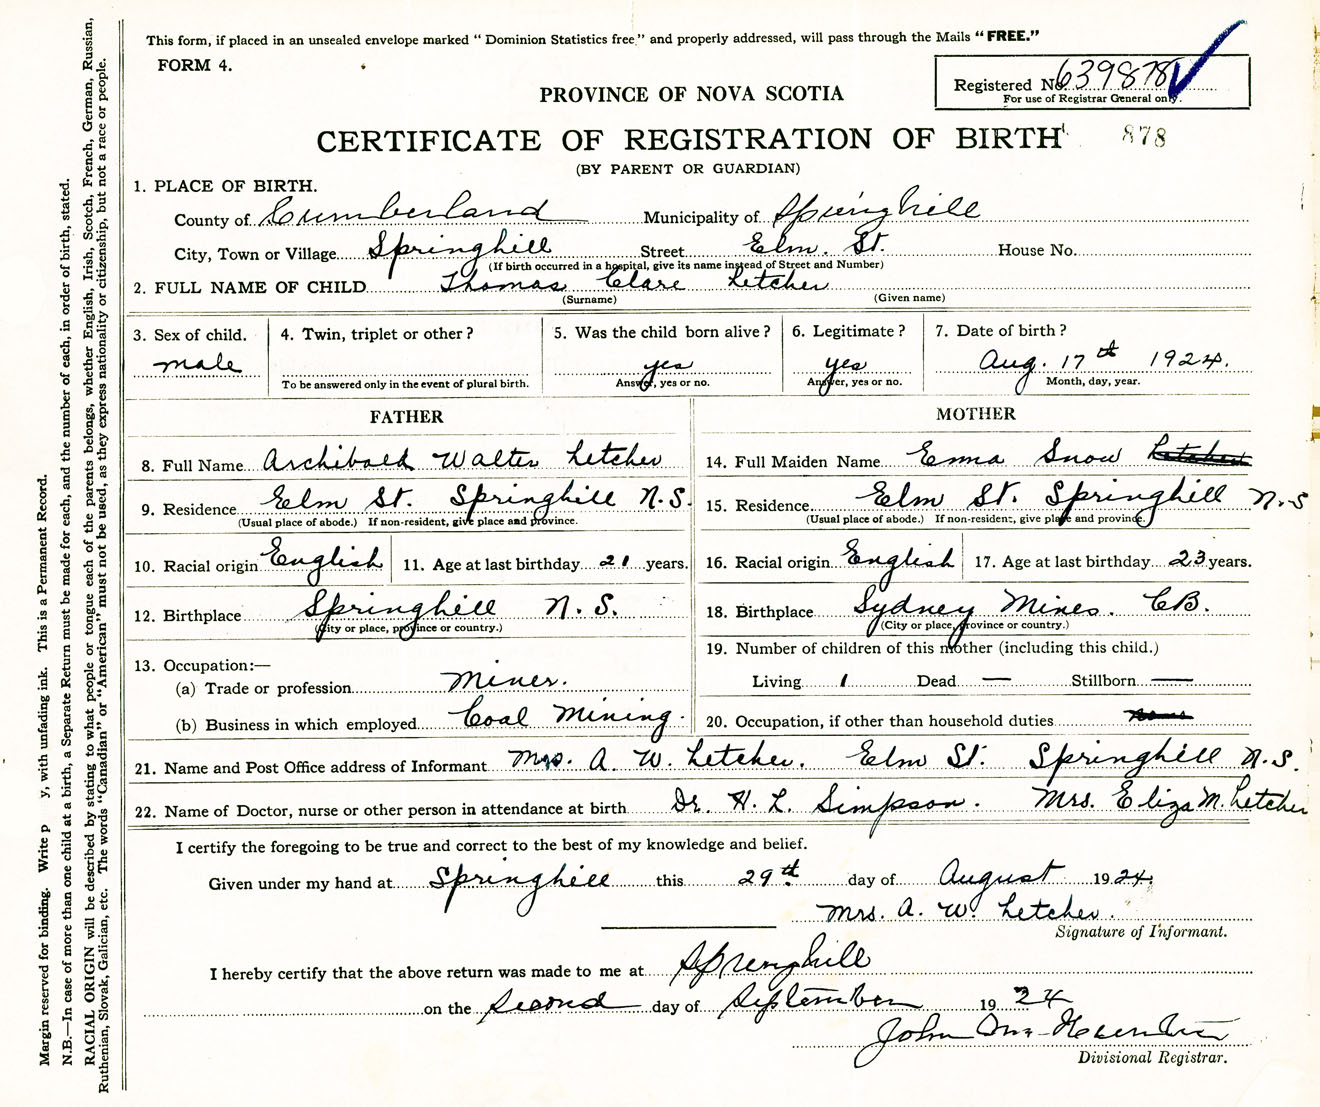 This form, if placed in an unsealed envelope marked "Dominion Statistics free" and properly addressed, will pass through the Mails "FREE."
FORM 4.
Registered No. 639878
For use of Registrar General only.
PROVINCE OF NOVA SCOTIA
CERTIFICATE OF REGISTRATION OF BIRTH 878
(BY PARENT OR GUARDIAN)
1. PLACE OF BIRTH.
County of Cumberland Municipality of Springhill
City, Town or Village Springhill Street Elm. St. House No.
(If birth occurred in a hospital, give its name instead of Street and Number)
2. FULL NAME OF CHILD Thomas Clare Letcher
(Surname) (Given name)
3. Sex of child. 4. Twin, triplet or other? 5. Was the child born alive? 6. Legitimate? 7. Date of birth?
male yes yes Aug. 17th 1924.
To be answered only in the event of plural birth. Answer, yes or no. Answer, yes or no. Month, day, year.
FATHER MOTHER
8. Full Name Archibald Walter Letcher 14. Full Maiden Name Emma Snow
9. Residence Elm St. Springhill N.S. 15. Residence Elm St. Springhill N.S
(Usual place of abode.) If non-resident, give place and province. (Usual place of abode.) If non-resident, give place and province.
10. Racial origin English 11. Age at last birthday 21 years. 16. Racial origin English 17. Age at last birthday 23 years.
12. Birthplace Springhill N.S. 18. Birthplace Sydney Mines. C.B.
(City or place, province or country.) (City or place, province or country.)
13. Occupation:— 19. Number of children of this mother (including this child.)
(a) Trade or profession Miner. Living 1 Dead — Stillborn —
(b) Business in which employed Coal Mining. 20. Occupation, if other than household duties
21. Name and Post Office address of Informant Mrs. A. W. Letcher. Elm St. Springhill N.S.
22. Name of Doctor, nurse or other person in attendance at birth Dr. H. L. Simpson. Mrs. Eliza M. Letcher
I certify the foregoing to be true and correct to the best of my knowledge and belief.
Given under my hand at Springhill this 29th day of August 1924.
Mrs. A. W. Letcher.
Signature of Informant.
I hereby certify that the above return was made to me at Springhill
on the Second day of September 1924
John
Divisional Registrar.
Margin reserved for binding. Write p y, with unfading ink. This is a Permanent Record.
N.B.—In case of more than one child at a birth, a Separate Return must be made for each, and the number of each, in order of birth, stated.
RACIAL ORIGIN will be described by stating to what people or tongue each of the parents belongs, whether English, Irish, Scotch, French, German, Russian,
Ruthenian, Slovak, Galician, etc. The words "Canadian" or "American" must not be used, as they express nationality or citizenship, but not a race or people.